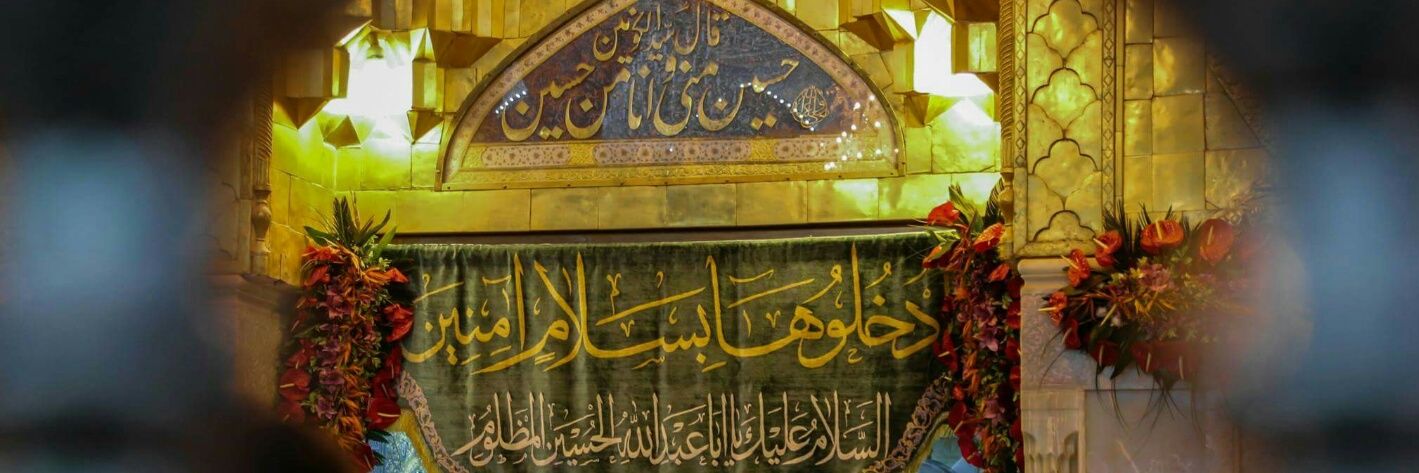 قال سید الکونین
حسین منی و انا من حسین
دخُلُوهَا بِسَلَامٍ آمِنِینَ
اَلسَّلامُ عَلَیْكَ یا اَبا عَبْدِاللهِ الْحُسَیْنِ الْمَظْلُوم